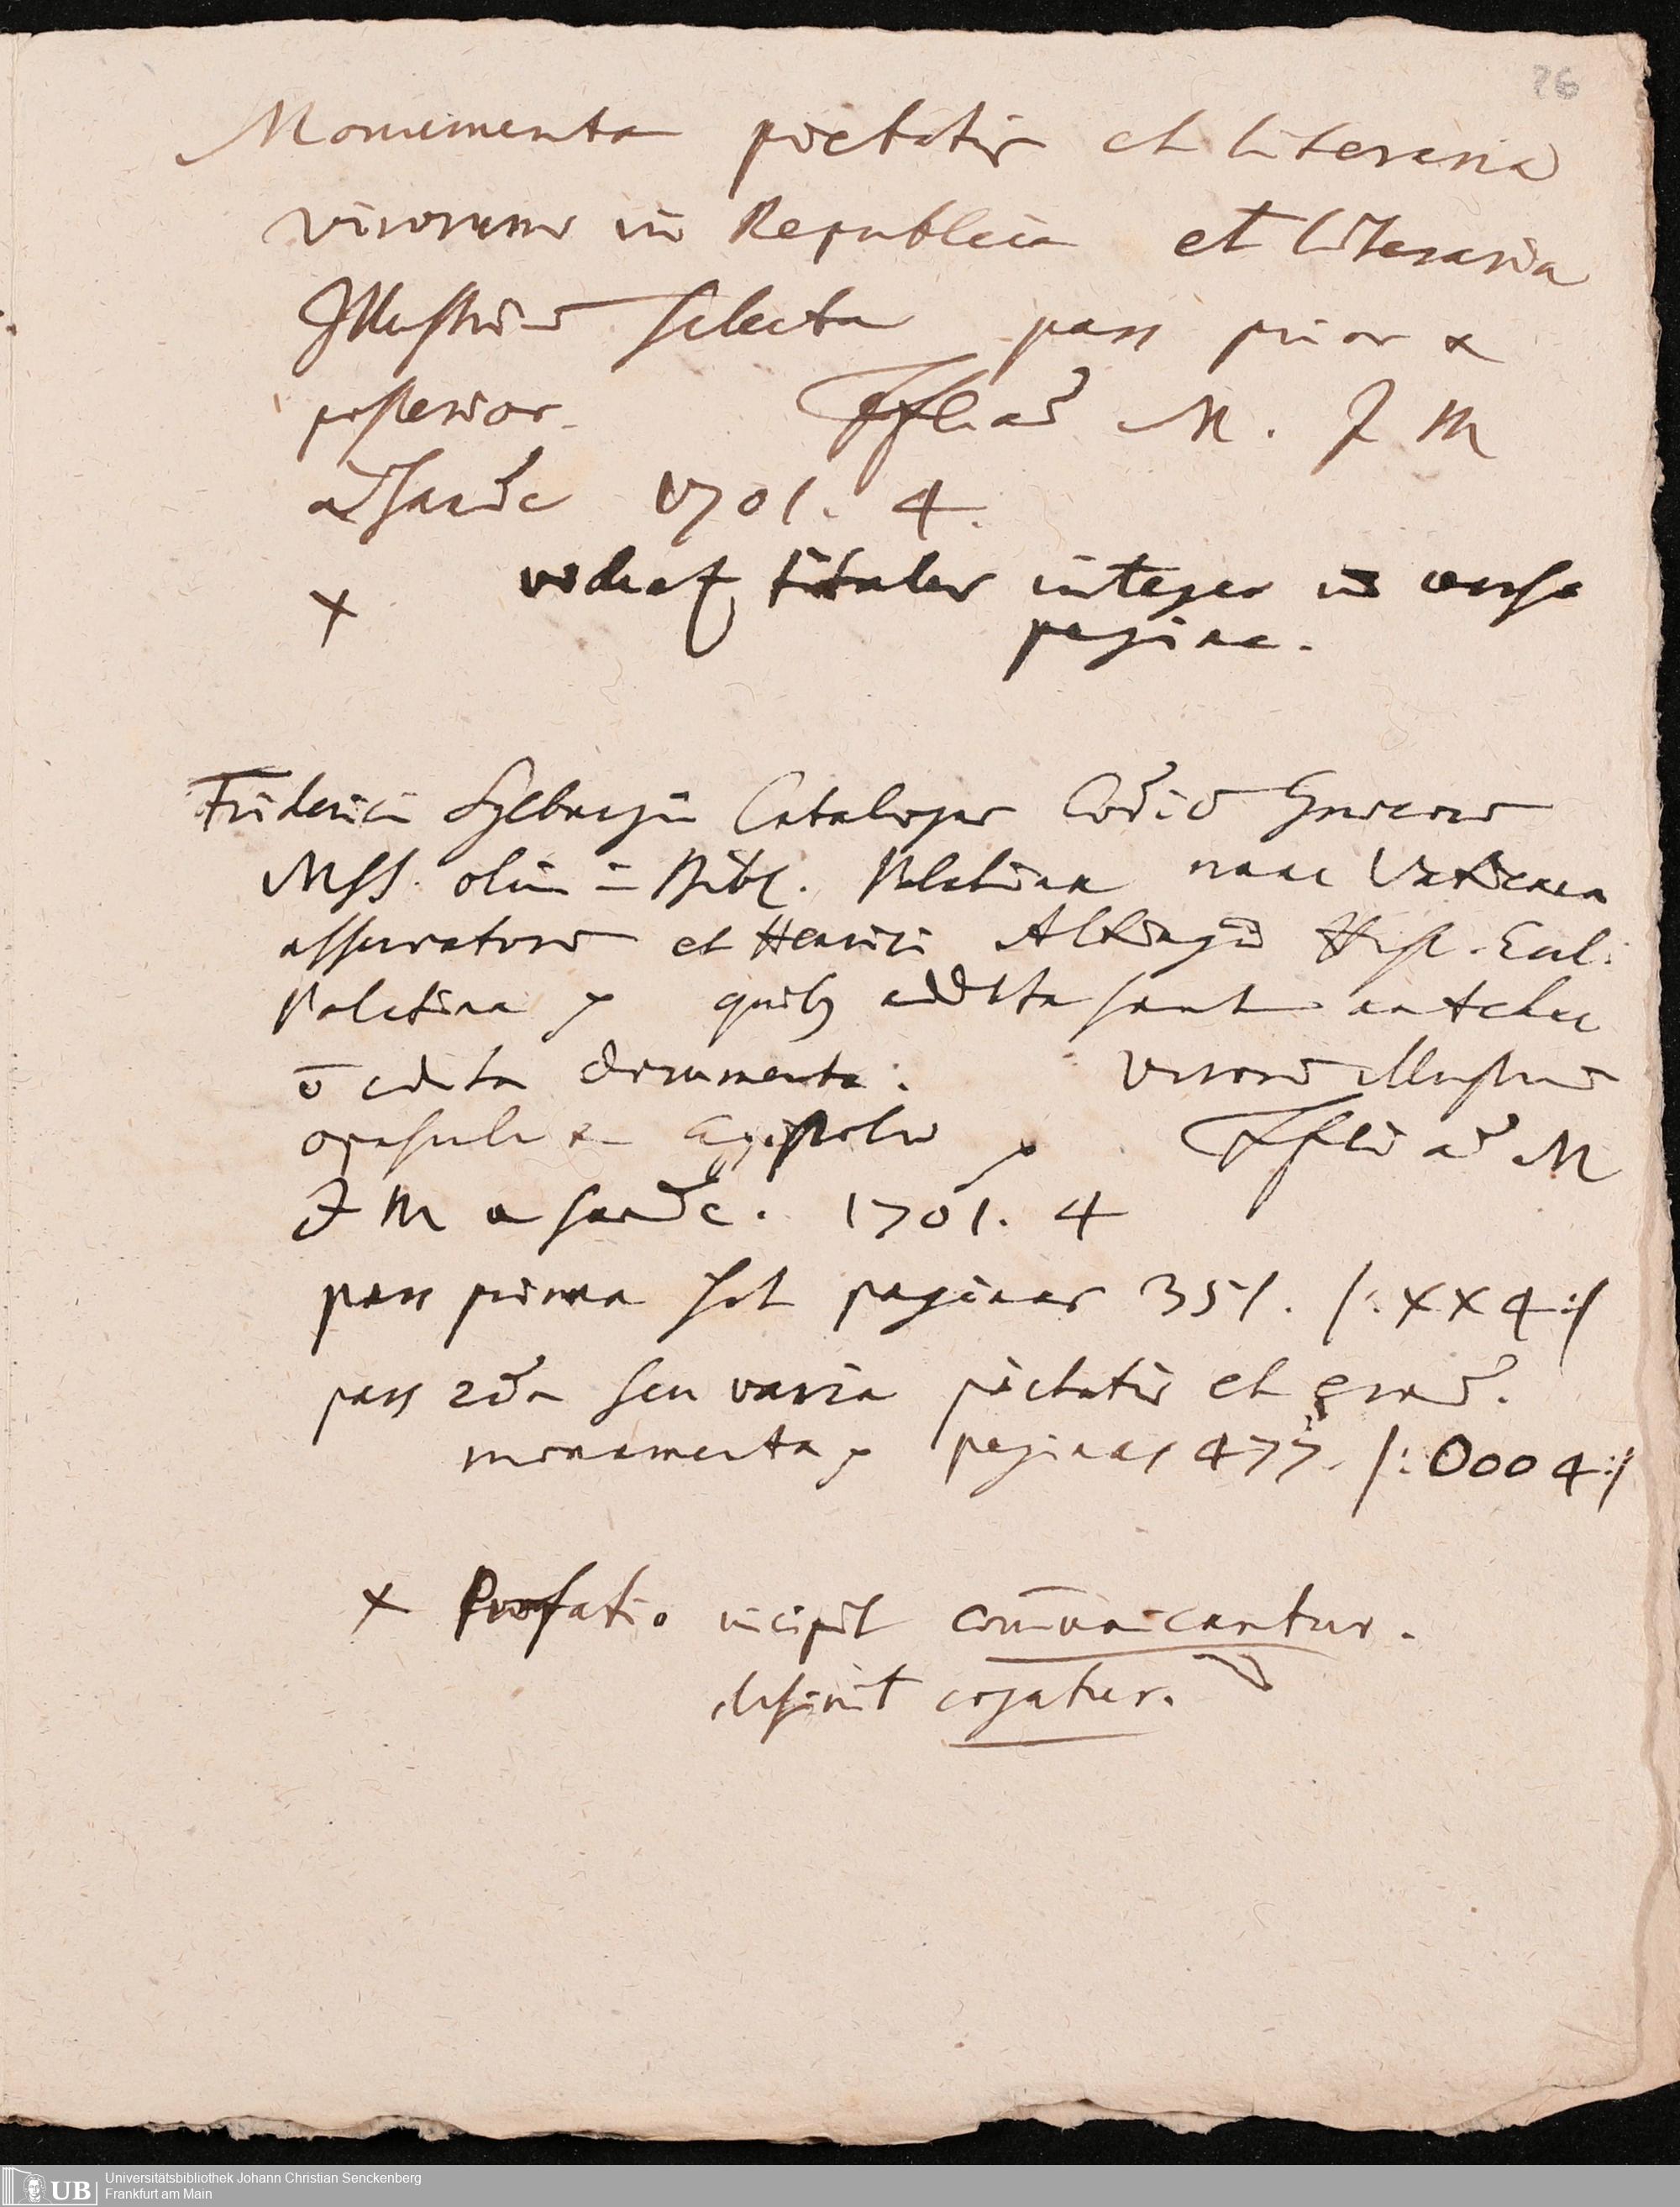 76
Monumenta pietatis et literaria
virorum in Republica et literaria
Illustriū selecta pars prior &
posterior. Ffti ad M. J M
a Sande 1701. 4.
+ videat titulus integer in versa
pagina.
Friderici Sylburgii Catalogus Codic Graecor
MSS. olim in Bibl. Palatina nunc Vaticana
asservatorū et Henrici Altingii Hist. Eccl.
Palatina quib9 addita sunt antehac
edita documenta. Virorū illustriū
opuscula & Epistolae Ffti ad M
J M a Sande. 1701. 4
pars prima hat paginas 351. /: XX 4 :/
pars 2da seu varia pietatis et erud.
monumenta paginas 477. /: Ooo 4 :/
+ Praefatio incipit com̄unicantur.
desinit cogatur.
UB Universitätsbibliothek Johann Christian Senckenberg
Frankfurt am Main